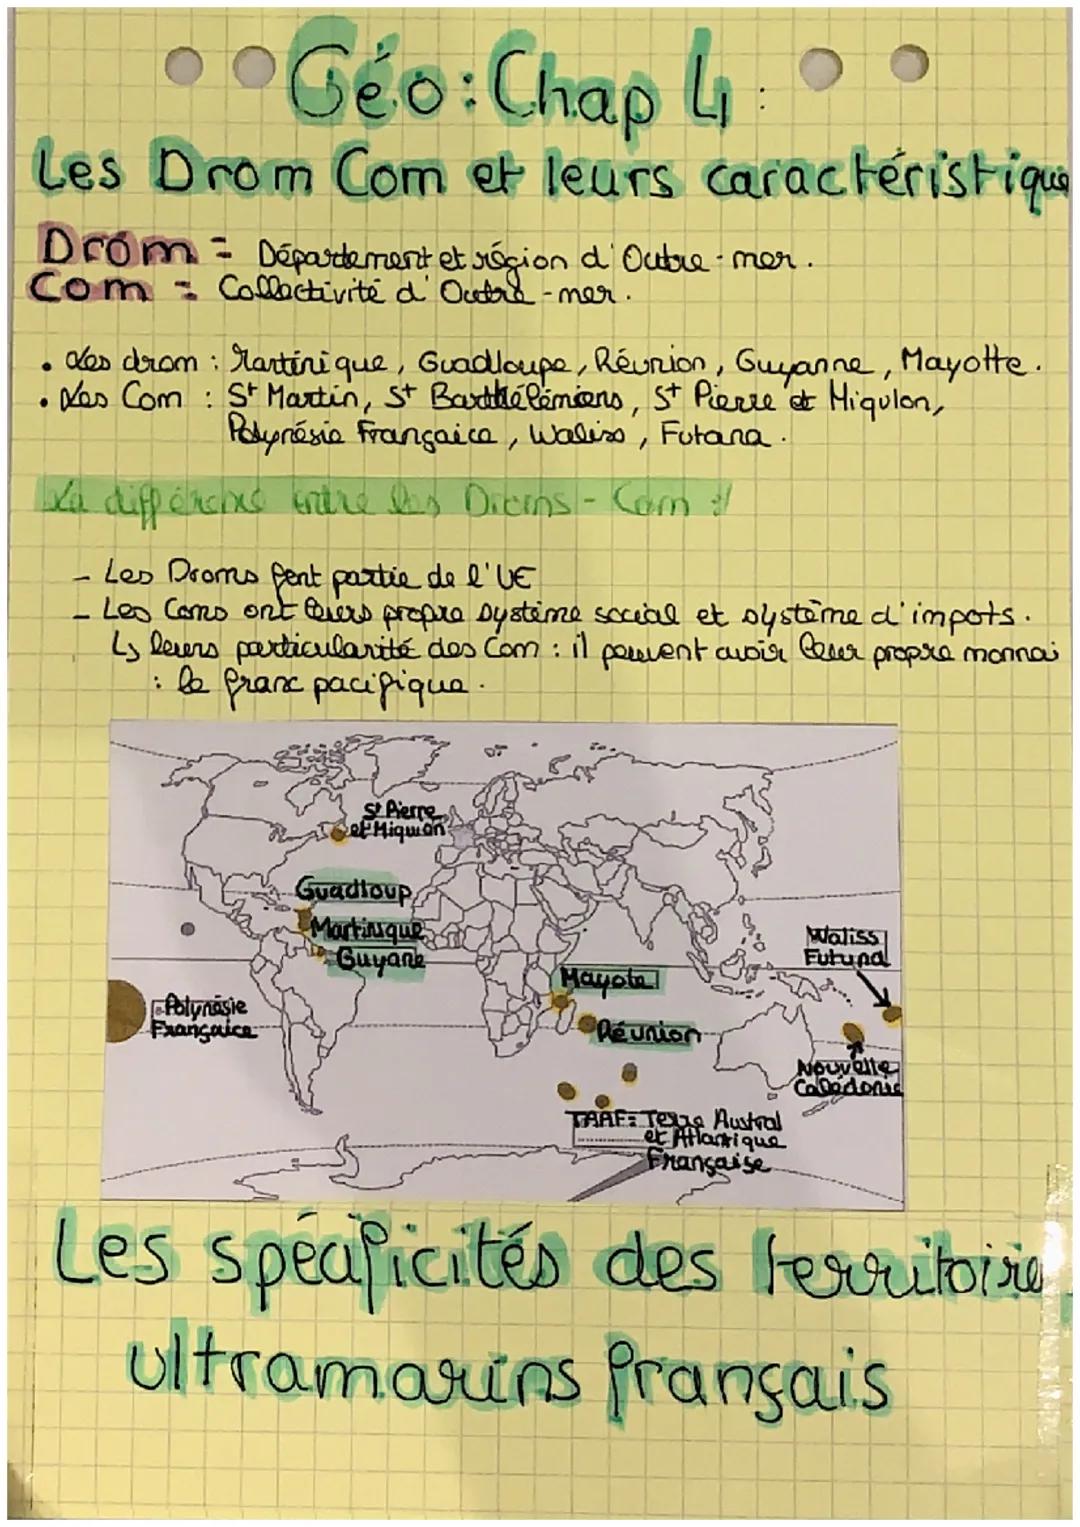 Géo : Chap 4 :
Les Drom Com et leurs caractéristique
Drom = Département et région d'Outre-mer.
Com = Collectivité d'Outre-mer.
• Les drom : Martinique, Guadloupe, Réunion, Guyanne, Mayotte.
• Les Com : St Martin, St Barthélémiens, St Pierre et Miqulon,
Polynésie Françaice, Waliss, Futana.
La différence entre les Droms - Com :
- Les Droms font partie de l'UE
- Les Coms ont leurs propre système social et système d'impots.
↳ leurs particularité des Com : il peuvent avoir leur propre monnai
: le franc pacifique.
St Pierre
et Miquion
Guadloup
Martinique
Guyane
Waliss
Futuna
Mayote
Polynésie
Françaice
Réunion
Nouvelle
Calédonie
TAAF = Terre Austral
et Atlantique
Française
Les spécificités des territoire
ultramarins français